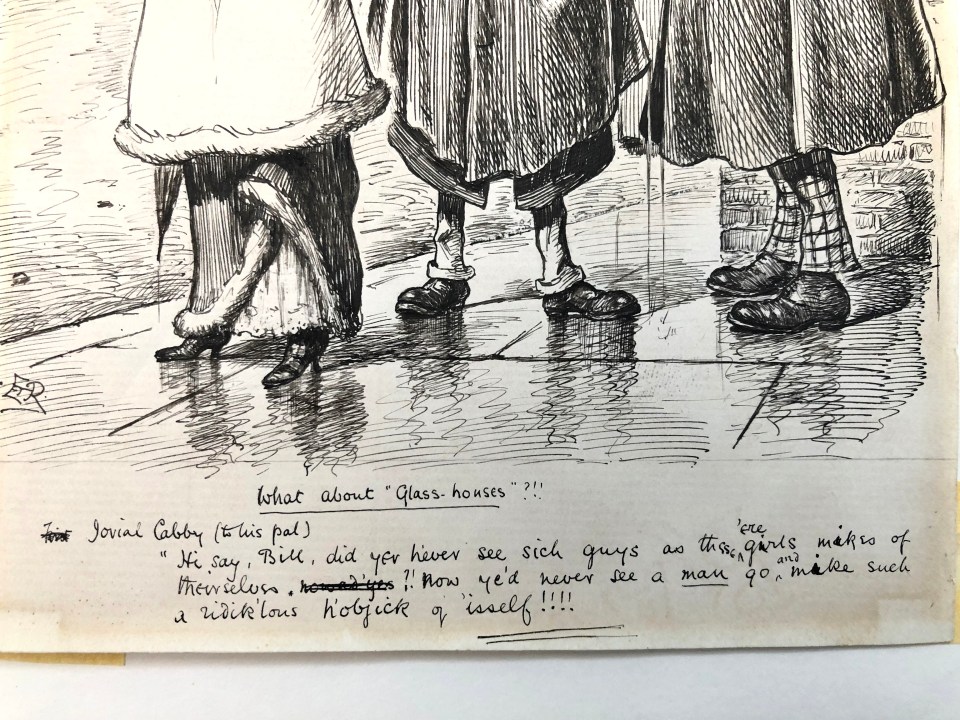 ER
What about "Glass-houses"?!!
First Jovial Cabby (to his pal)
"Hi say, Bill, did yer h'ever see sich guys as these 'ere girls makes of
themselves nowad'yes ?! Now ye'd never see a man go and make such
a ridik'lous h'objick of 'isself!!!!